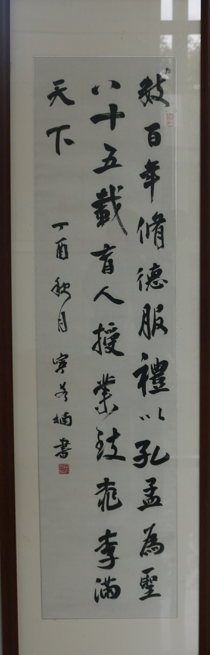 百年脩德服禮以孔孟為聖
八十五載育人授業致桃李滿
天下
丁酉秋月 楠書